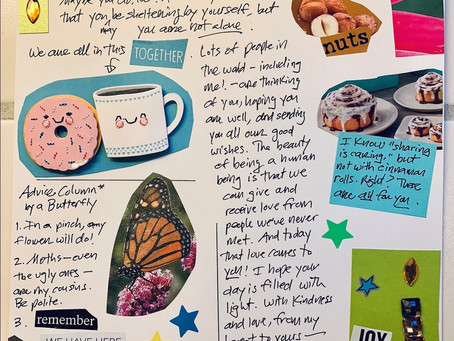 Maybe you
that you be sheltering by yourself, but
may
you are not alone.
We are all in this TOGETHER.
Lots of people in
the world – including
me! – are thinking
of you, hoping you
are well, and sending
you all our good
wishes. The beauty
of being a human
being is that we
can give and
receive love from
people we've never
met. And today
that love comes to
you! I hope your
day is filled with
light. With kindness
and love, from my
heart to yours –
nuts
I know "sharing
is caring," but
not with cinnamon
rolls. Right? These
are all for you.
Advice Column*
by a Butterfly
1. In a pinch, any
flower will do!
2. Moths – even
the ugly ones –
are my cousins.
Be polite.
3. remember
WE HAVE HERE
JOY